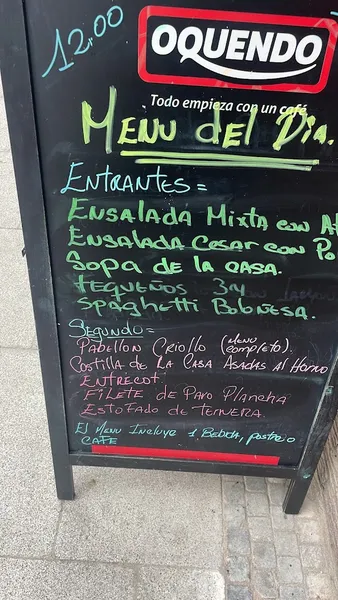 12.00
OQUENDO
Todo empieza con un café
Menu del Dia.
Entrantes =
Ensalada Mixta con At
Ensalada Cesar con Po
Sopa de la casa.
Tequeños 3u
Spaghetti Boloñesa.
Segundo =
Pabellon Criollo (Menú completo).
Costilla de la Casa Asadas Al Horno
Entrecot.
Filete de Pavo Plancha
Estofado de Ternera.
El Menu Incluye 1 Bebida, postre o
Cafe